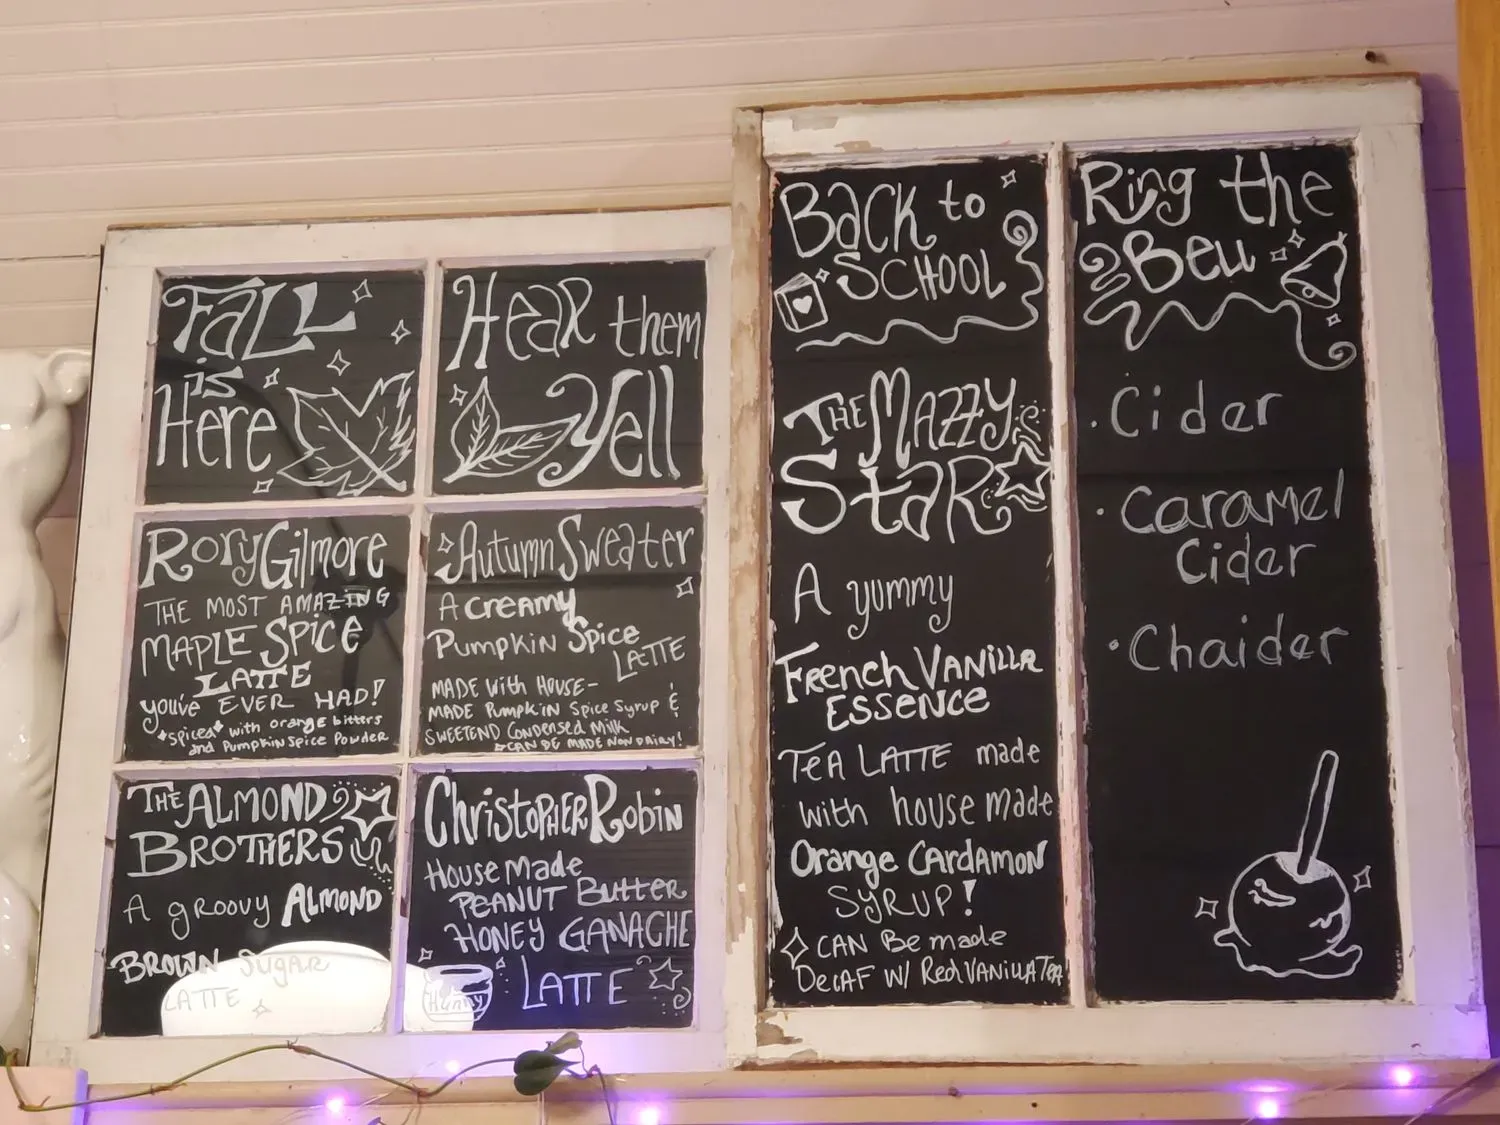 Fall
is
Here
Hear them
Yell
Rory Gilmore
THE MOST AMAZING
MAPLE SPICE
LATTE
you've EVER HAD!
*spiced* with orange bitters
and Pumpkin Spice Powder
Autumn Sweater
A creamy
Pumpkin Spice
LATTE
MADE with HOUSE-
MADE Pumpkin Spice Syrup &
SWEETEND Condensed Milk
CAN BE MADE NON DAIRY!
THE ALMOND
BROTHERS
A groovy ALMOND
BROWN SUGAR
LATTE
Christopher Robin
House Made
PEANUT Butter
HONEY GANACHE
LATTE
Hunny
Back to
SCHOOL
THE MAZZY
Star
A yummy
French VANILLA
ESSENCE
TEA LATTE made
with house made
Orange CARDAMON
SYRUP!
CAN Be made
DeCAF W/ Red VANILLA TEA
Ring the
Bell
· Cider
· Caramel
Cider
· Chaider